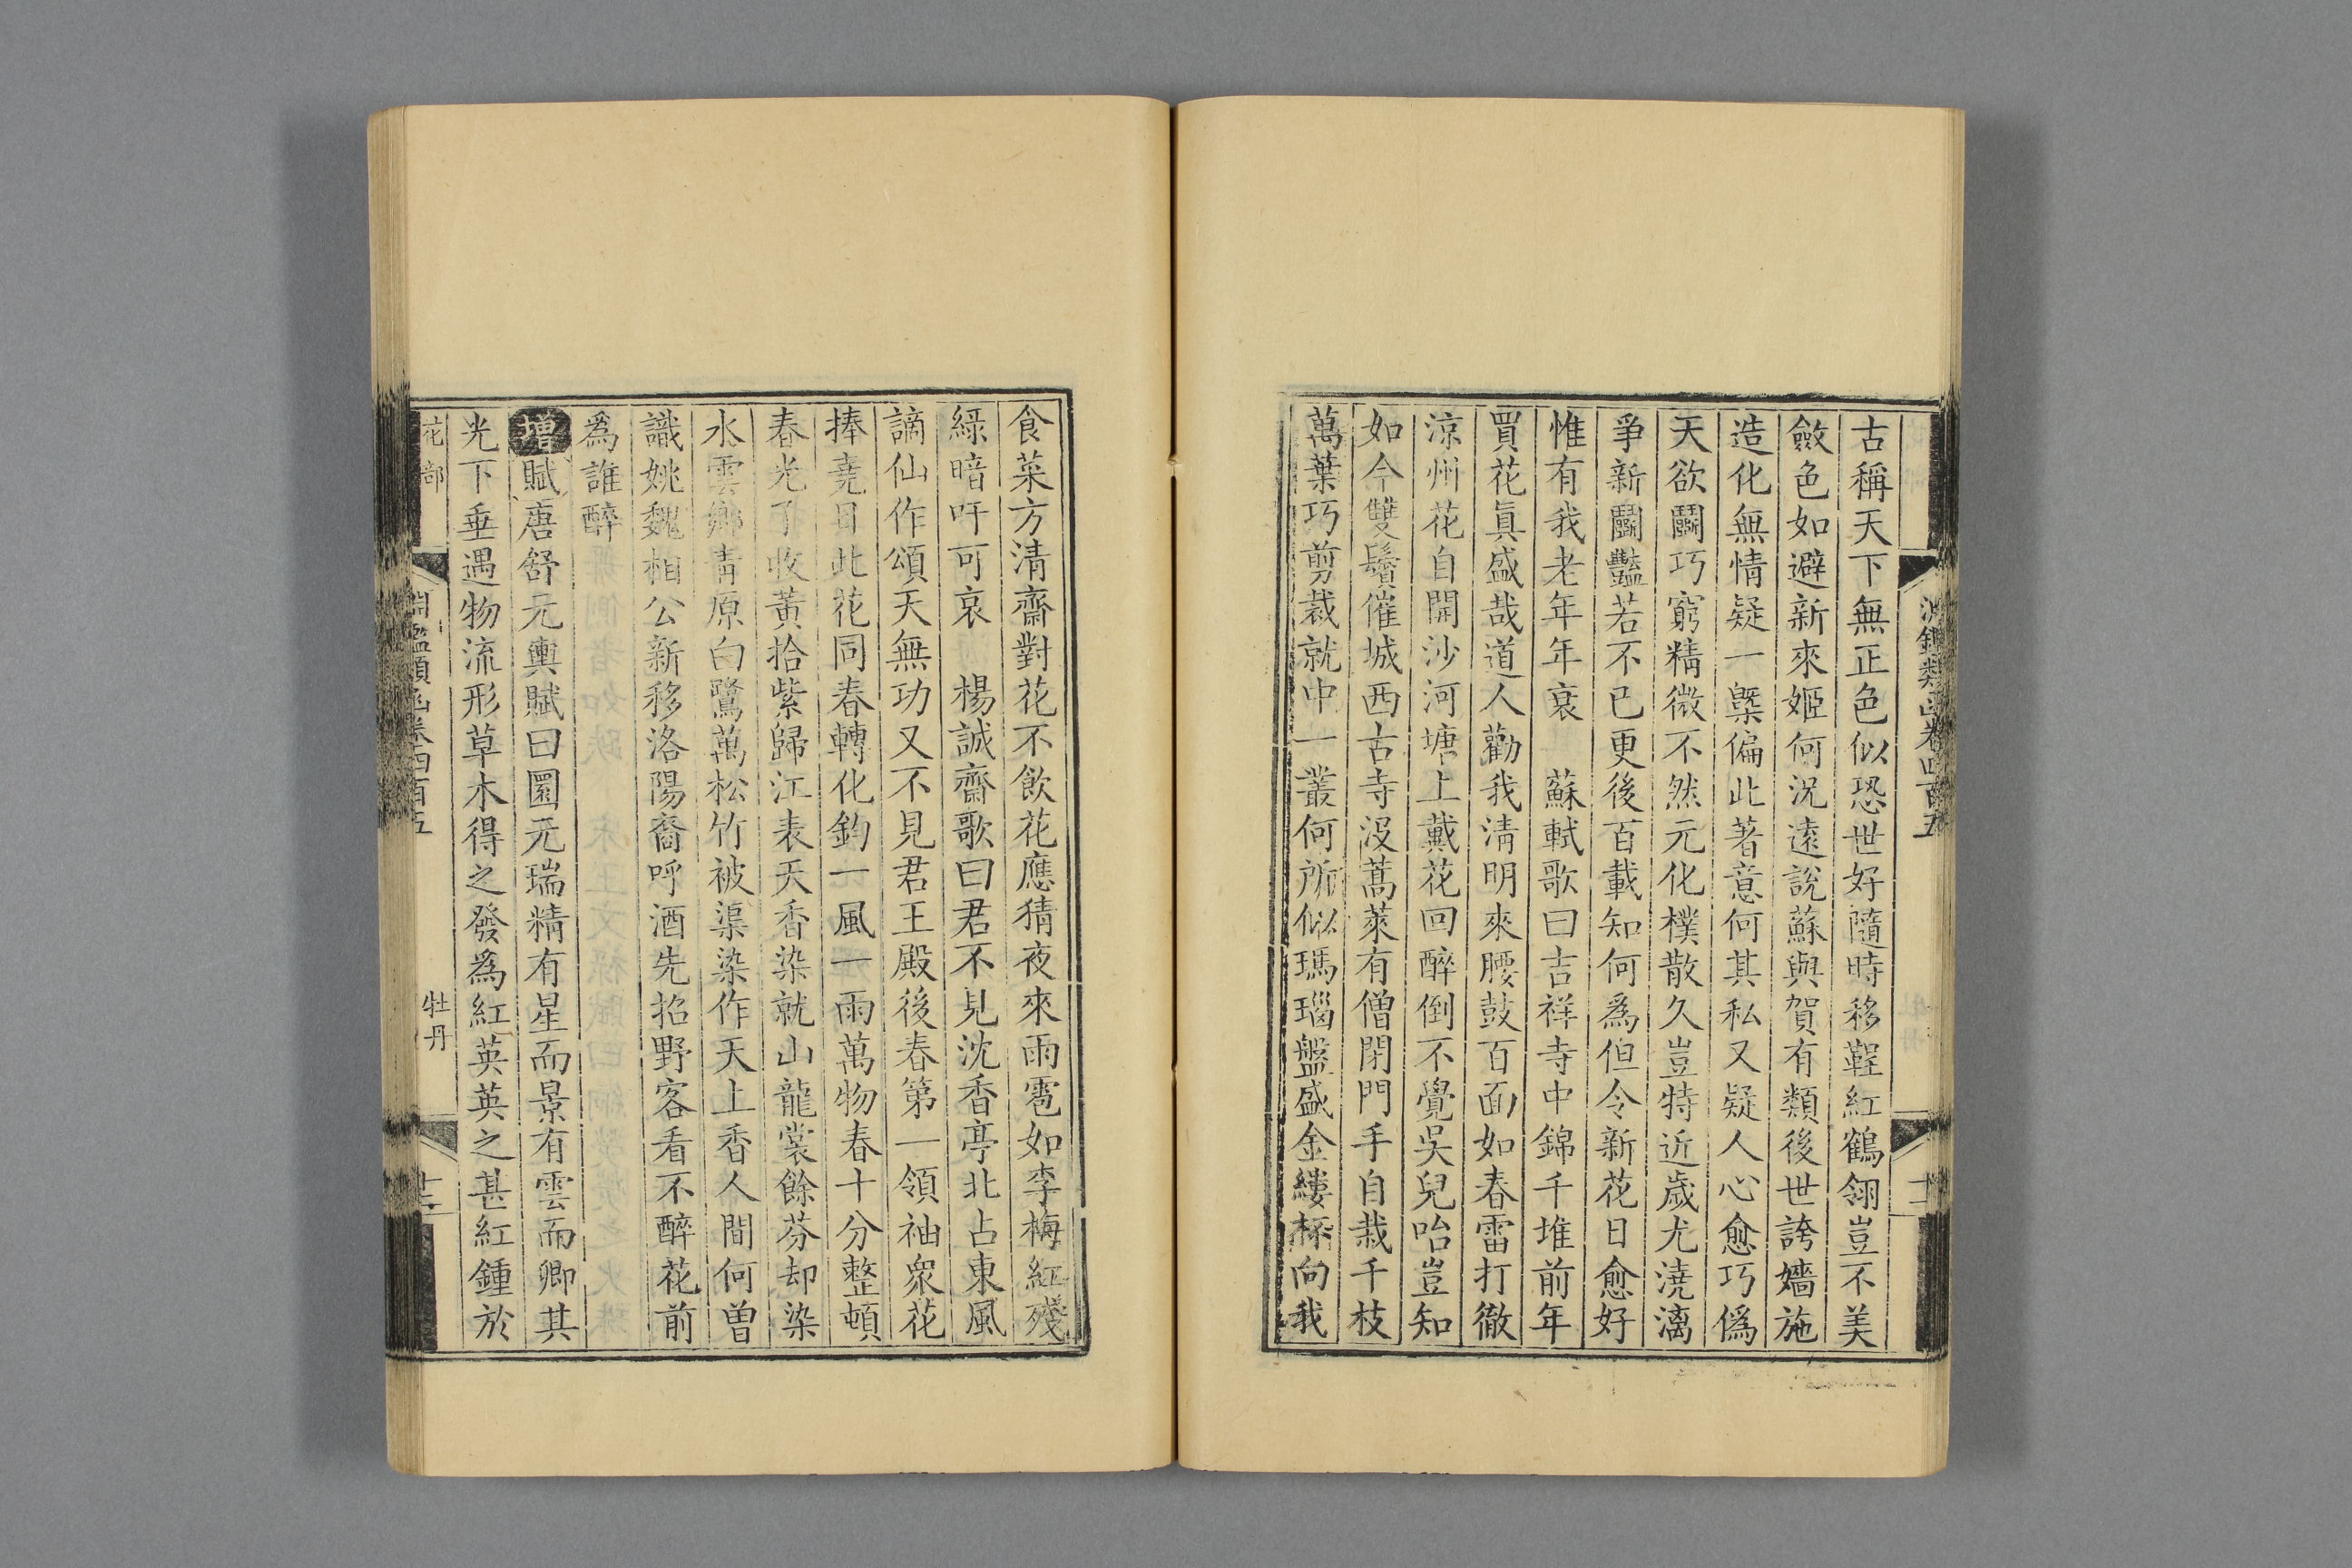 淵鑑類函卷四百五
十二
古稱天下無正色似恐世好隨時移鞓紅鶴翎豈不美
斂色如避新來姬何況遠說蘇與賀有類後世誇嬙施
造化無情疑一槩偏此著意何其私又疑人心愈巧偽
天欲鬭巧窮精微不然元化樸散久豈特近歲尤澆漓
爭新鬭豔若不已更後百載知何為但令新花日愈好
惟有我老年年衰　蘇軾歌曰吉祥寺中錦千堆前年
買花眞盛哉道人勸我清明來腰鼓百面如春雷打徹
涼州花自開沙河塘上戴花回醉倒不覺吳兒咍豈知
如今雙鬢催城西古寺沒蒿萊有僧閉門手自栽千枝
萬葉巧剪裁就中一叢何所似瑪瑙盤盛金縷桮向我
食菜方清齋對花不飲花應猜夜來雨雹如李梅紅殘
綠暗吁可哀　楊誠齋歌曰君不見沈香亭北占東風
謫仙作頌天無功又不見君王殿後春第一領袖衆花
捧堯日此花同春轉化鈞一風一雨萬物春十分整頓
春光了收黃拾紫歸江表天香染就山龍裳餘芬却染
水雲鄉青原白鷺萬松竹被渠染作天上香人間何曾
識姚魏相公新移洛陽裔呼酒先招野客看不醉花前
為誰醉
增賦唐舒元輿賦曰圜元瑞精有星而景有雲而卿其
光下垂遇物流形草木得之發為紅英英之甚紅鍾於
花部
淵鑑類函卷四百五
牡丹